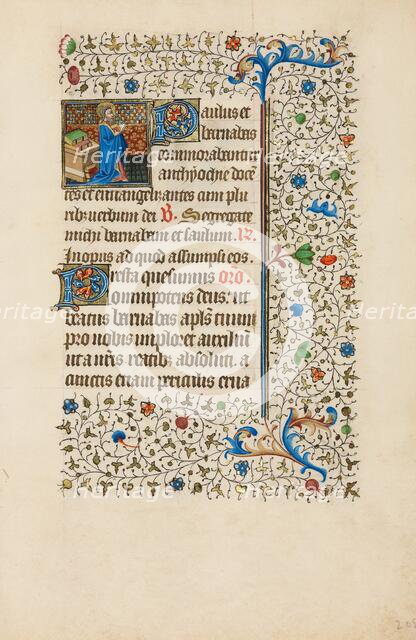 Paulus et
barnabas
demorabantur
anthyochie docē
tes et euuangelizantes cum plu
ribus uerbum dei V. Segregate
michi barnabam et saulum. R.
In opus ad quod assumpsi eos.
Presta quesumus oro
omnipotens deus. ut
beatus barnabas apl̄s tuum
pro nobis imploret auxiliū
ut a nr̄is reatib; absoluti. a
cunctis etiam periculis erua